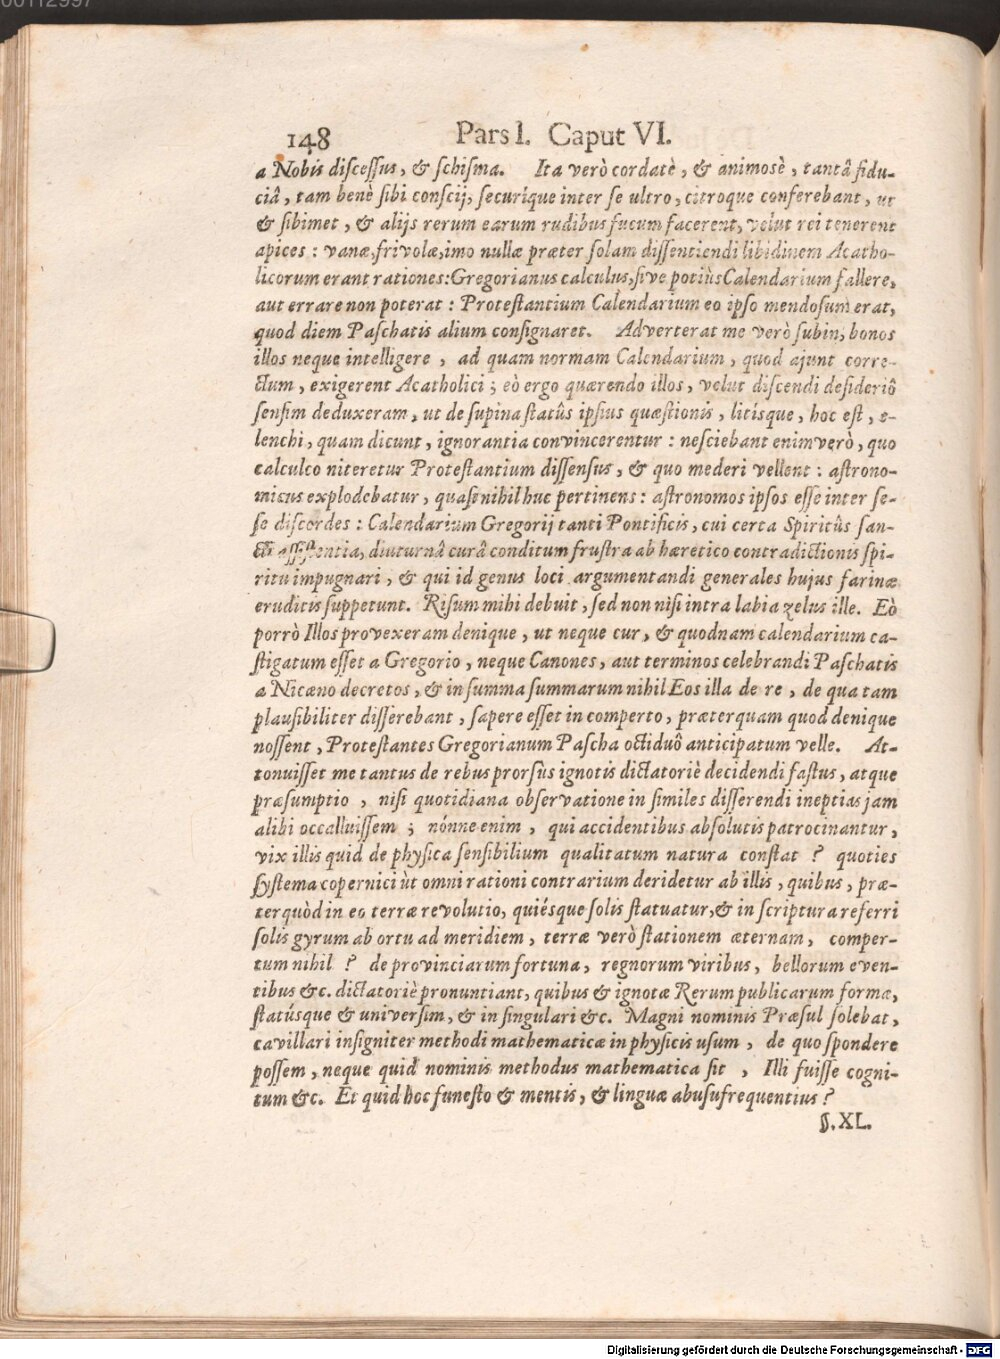 00112997
148 Pars I. Caput VI.
a Nobis discessus, & schisma. Ita verò cordatè, & animosè, tantâ fidu-
ciâ, tam benè sibi conscij, securíque inter se ultro, citroque conferebant, ut
& sibimet, & alijs rerum earum rudibus fucum facerent, velut rei tenerent
apices: vanæ, frivolæ, imo nullæ præter solam dissentiendi libidinem Acatho-
licorum erant rationes: Gregorianus calculus, sive potiùs Calendarium fallere,
aut errare non poterat: Protestantium Calendarium eo ipso mendosum erat,
quod diem Paschatis alium consignaret. Adverterat me verò subin, bonos
illos neque intelligere, ad quam normam Calendarium, quod ajunt corre-
ctum, exigerent Acatholici; eò ergo quærendo illos, velut discendi desideriô
sensim deduxeram, ut de supina statûs ipsius quæstionis, litísque, hoc est, e-
lenchi, quam dicunt, ignorantia convincerentur: nesciebant enimverò, quo
calculco niteretur Protestantium dissensus, & quo mederi vellent: astrono-
micus explodebatur, quasi nihil huc pertinens: astronomos ipsos esse inter se-
se discordes: Calendarium Gregorij tanti Pontificis, cui certa Spiritûs san-
cti assistentia, diuturnâ curâ conditum frustra ab hæretico contradictionis spi-
ritu impugnari, & qui id genus loci argumentandi generales hujus farinæ
eruditis suppetunt. Risum mihi debuit, sed non nisi intra labia zelus ille. Eò
porrò Illos provexeram denique, ut neque cur, & quodnam calendarium ca-
stigatum esset a Gregorio, neque Canones, aut terminos celebrandi Paschatis
a Nicæno decretos, & in summa summarum nihil Eos illa de re, de qua tam
plausibiliter disserebant, sapere esset in comperto, præterquam quod denique
nossent, Protestantes Gregorianum Pascha octiduô anticipatum velle. At-
tonuisset me tantus de rebus prorsùs ignotis dictatoriè decidendi fastus, atque
præsumptio, nisi quotidiana observatione in similes disserendi ineptias jam
alibi occalluissem; nónne enim, qui accidentibus absolutis patrocinantur,
vix illis quid de physica sensibilium qualitatum natura constat? quoties
systema copernici ùt omni rationi contrarium deridetur ab illis, quibus, præ-
terquòd in eo terræ revolutio, quiésque solis statuatur, & in scriptura referri
solis gyrum ab ortu ad meridiem, terræ verò stationem æternam, comper-
tum nihil? de provinciarum fortuna, regnorum viribus, bellorum even-
tibus &c. dictatoriè pronuntiant, quibus & ignotæ Rerum publicarum formæ,
statúsque & universim, & in singulari &c. Magni nominis Præsul solebat,
cavillari insigniter methodi mathematicæ in physicis usum, de quo spondere
possem, neque quid nominis methodus mathematica sit, Illi fuisse cogni-
tum &c. Et quid hoc funesto & mentis, & linguæ abusu frequentius?
§. XL.
Digitalisierung gefördert durch die Deutsche Forschungsgemeinschaft - DFG